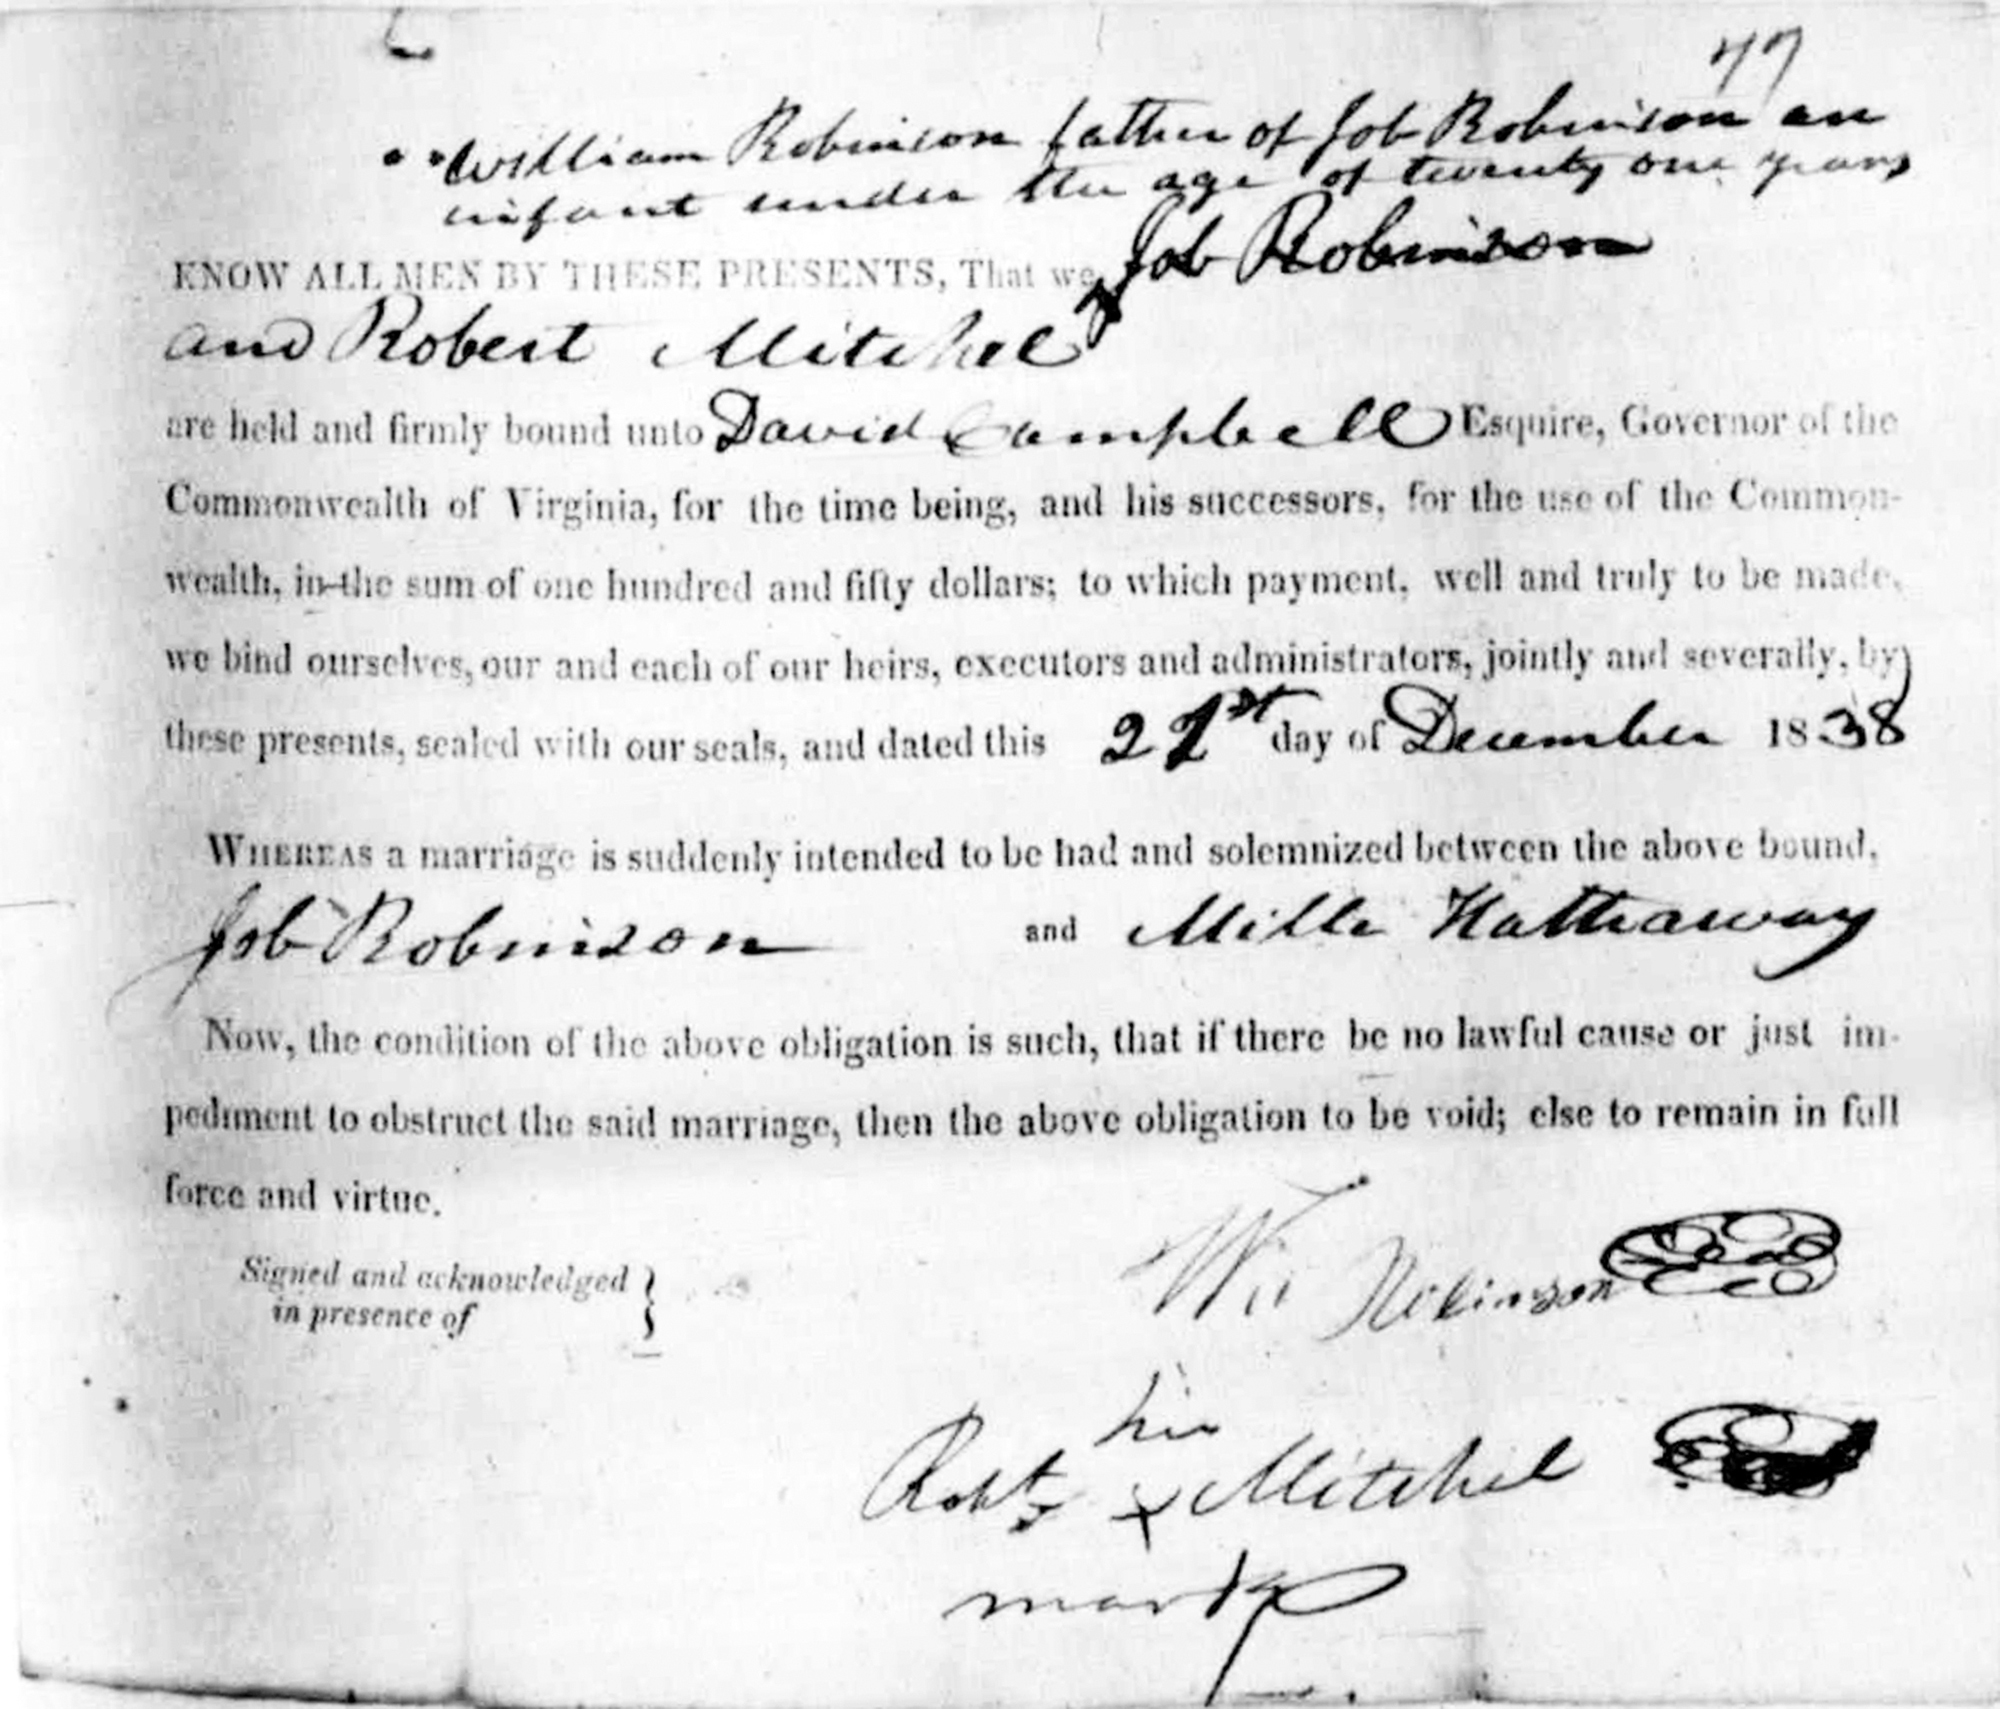 77
William Robinson father of Job Robinson an
infant under the age of twenty one years
KNOW ALL MEN BY THESE PRESENTS, That we, Job Robinson
and Robert Mitchel
are held and firmly bound unto David Campbell Esquire, Governor of the
Commonwealth of Virginia, for the time being, and his successors, for the use of the Common-
wealth, in the sum of one hundred and fifty dollars; to which payment, well and truly to be made,
we bind ourselves, our and each of our heirs, executors and administrators, jointly and severally, by
these presents, sealed with our seals, and dated this 21st day of December 1838
WHEREAS a marriage is suddenly intended to be had and solemnized between the above bound,
Job Robinson and Mille Hathaway
Now, the condition of the above obligation is such, that if there be no lawful cause or just im-
pediment to obstruct the said marriage, then the above obligation to be void; else to remain in full
force and virtue.
Signed and acknowledged
in presence of
Wm Robinson
his
Robt x Mitchel
mark